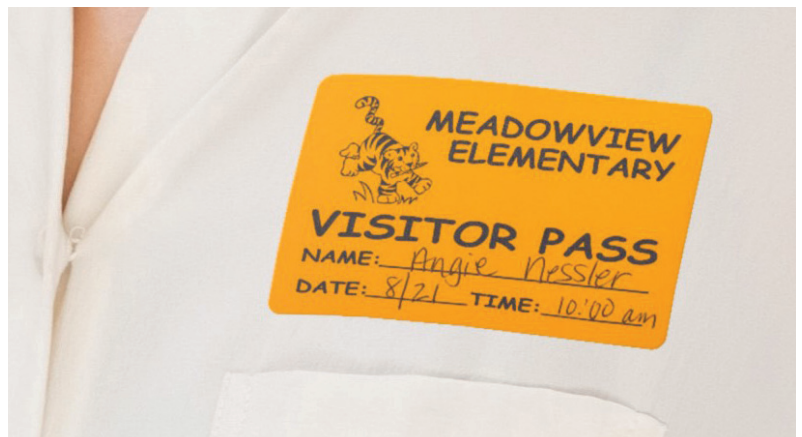 MEADOWVIEW
ELEMENTARY
VISITOR PASS
NAME: Angie Nessler
DATE: 8/21 TIME: 10:00 am